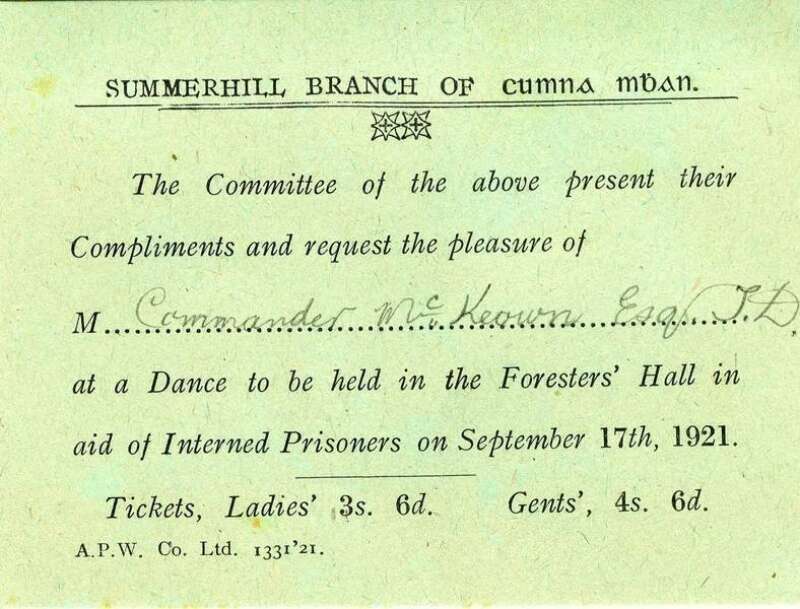 SUMMERHILL BRANCH OF cumna mḃan.
The Committee of the above present their
Compliments and request the pleasure of
M...Commander McKeown Esq T.D.
at a Dance to be held in the Foresters' Hall in
aid of Interned Prisoners on September 17th, 1921.
Tickets, Ladies' 3s. 6d. Gents', 4s. 6d.
A.P.W. Co. Ltd. 1331'21.